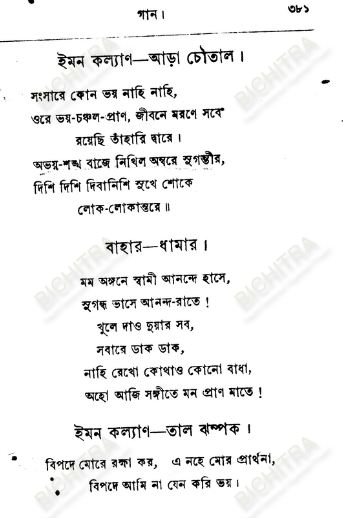 গান।
৩৮১
ইমন কল্যাণ—আড়া চৌতাল।
সংসারে কোন ভয় নাহি নাহি,
ওরে ভয়-চঞ্চল-প্রাণ, জীবনে মরণে সবে
রয়েছি তাঁহারি দ্বারে।
অভয়-শঙ্খ বাজে নিখিল অম্বরে সুগম্ভীর,
দিশি দিশি দিবানিশি সুখে শোকে
লোক-লোকান্তরে॥
বাহার—ধামার।
মম অঙ্গনে স্বামী আনন্দে হাসে,
সুগন্ধ ভাসে আনন্দ-রাতে!
খুলে দাও দুয়ার সব,
সবারে ডাক ডাক,
নাহি রেখো কোথাও কোনো বাধা,
অহো আজি সঙ্গীতে মন প্রাণ মাতে!
ইমন কল্যাণ—তাল ঝম্পক।
বিপদে মোরে রক্ষা কর, এ নহে মোর প্রার্থনা,
বিপদে আমি না যেন করি ভয়।
BICHITRA
BICHITRA
BICHITRA
BICHITRA
BICHITRA
BICHITRA